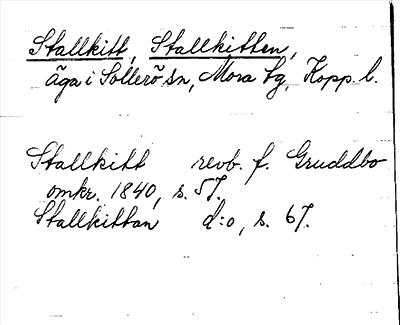 Stallkitt, Stallkitten,
äga i Sollerö sn, Mora tg, Kopp. l.
Stallkitt revb. f. Gruddbo
omkr. 1840, s. 57.
Stallkittan d:o, s. 67.